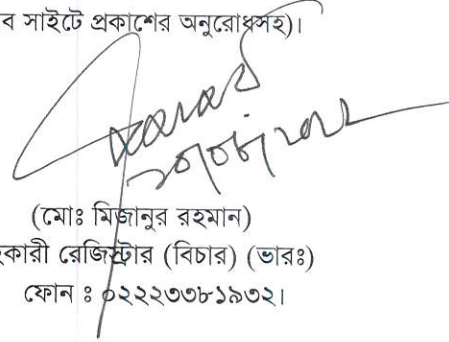 ব সাইটে প্রকাশের অনুরোধসহ)।
(মোঃ মিজানুর রহমান)
কারী রেজিস্ট্রার (বিচার) (ভারঃ)
ফোন ঃ ০২২২৩৩৮১৯৩২।